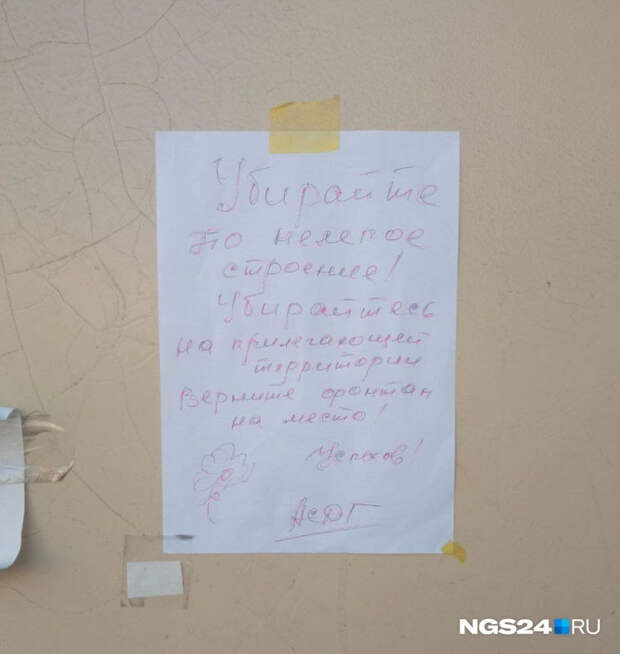 Убирайте
это нелепое
строение!
Убирайтесь
на прилегающей
территории
Верните фонтан
на место!
Успехов!
АСЮГ
NGS24.RU